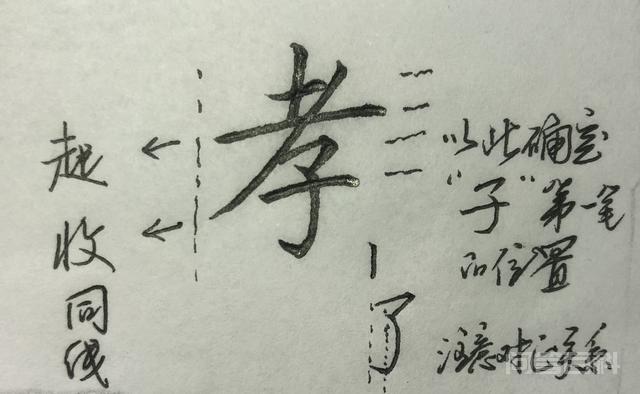 孝
起
收
同
线
以此确定
"子"第一笔
的位置
了
注意对正关系